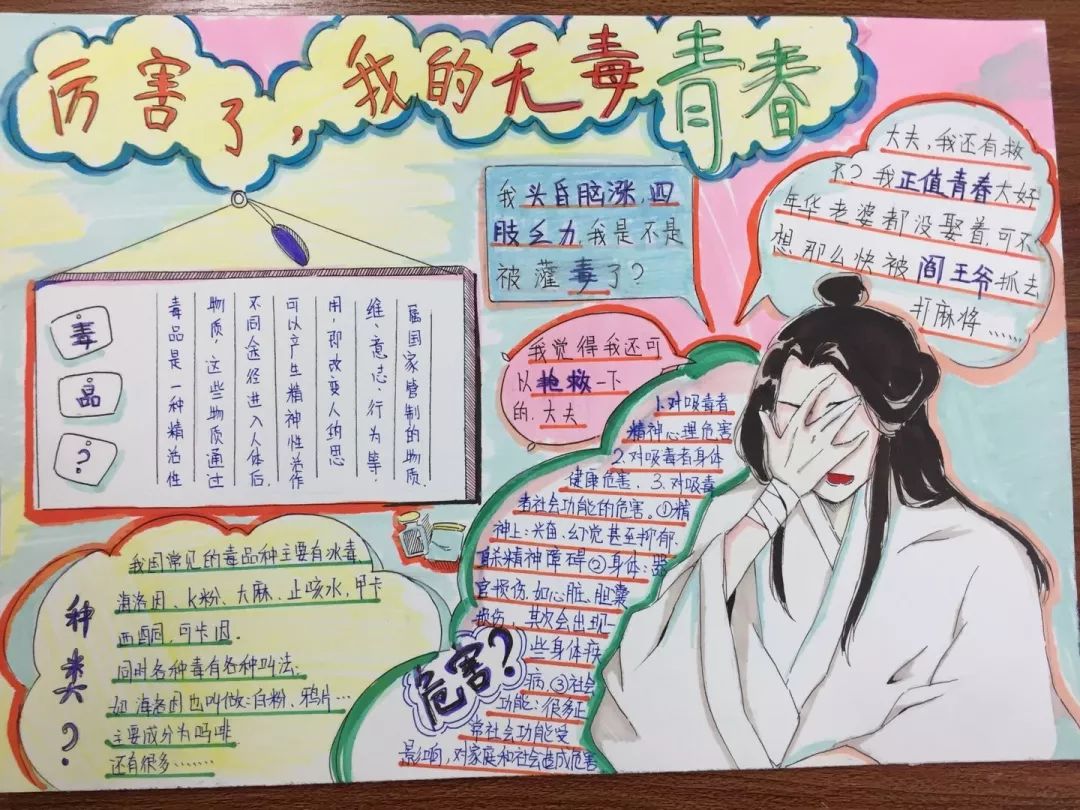 厉害了，我的无毒青春
我头昏脑涨,四
肢乏力,我是不是
被灌毒了？
大夫,我还有救
不？我正值青春大好
年华老婆都没娶着,可不
想,那么快被阎王爷抓去
打麻将……
我觉得我还可
以抢救一下
的.大夫
毒
品
？
毒品是一种精活性
物质，这些物质通过
不同途径进入人体后,
可以产生精神性活作
用,即改变人的思
维、意志、行为等,
属国家管制的物质.
种类？
我国常见的毒品种主要有冰毒
海洛因、K粉、大麻、止咳水,甲卡
西酮,可卡因.
同时各种毒有各种叫法:
如海洛因也叫做:白粉、鸦片…
主要成分为吗啡
还有很多………
危害？
1.对吸毒者
精神心理危害
2.对吸毒者身体
健康危害. 3.对吸毒
者社会功能的危害。①精
神上:兴奋、幻觉甚至抑郁.
自杀精神障碍②身体:器
官损伤.如心脏、胆囊
损伤，其次会出现一
些身体疾
病.③社会
功能:很多正
常社会功能受
影响,对家庭和社会造成危害